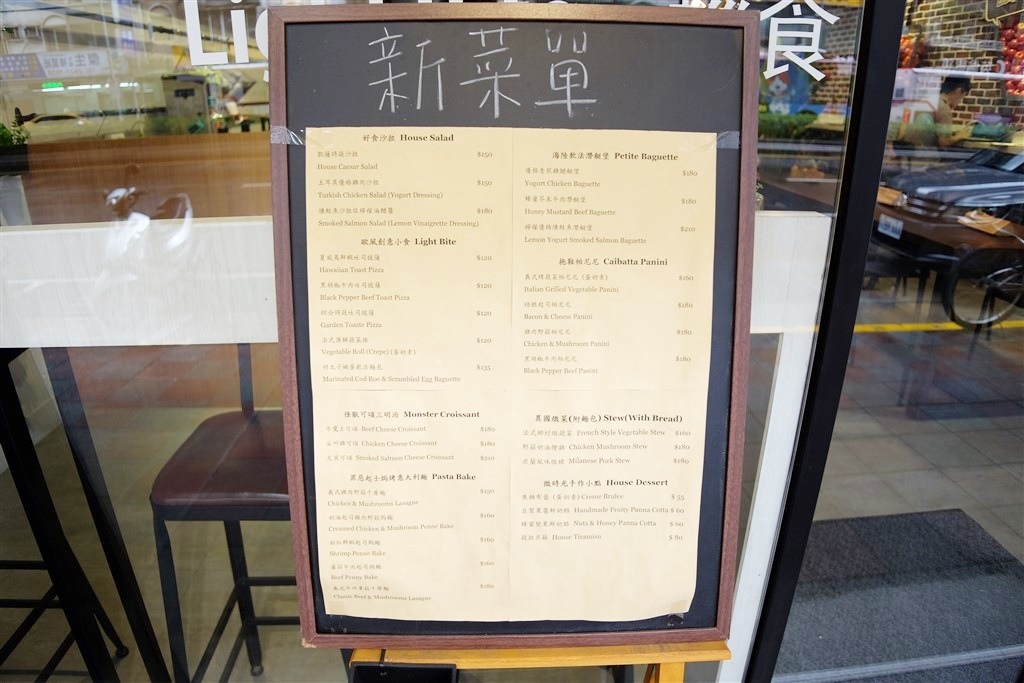 Li
食
新菜單
好食沙拉 House Salad
凱薩時蔬沙拉 $150
House Caesar Salad
土耳其優格雞肉沙拉 $150
Turkish Chicken Salad (Yogurt Dressing)
燻鮭魚沙拉佐檸檬油醋醬 $180
Smoked Salmon Salad (Lemon Vinaigrette Dressing)
歐風創意小食 Light Bite
夏威夷鮮蝦吐司披薩 $120
Hawaiian Toast Pizza
黑胡椒牛肉吐司披薩 $120
Black Pepper Beef Toast Pizza
綜合時蔬吐司披薩 $120
Garden Toaste Pizza
法式薄餅蔬菜捲 $120
Vegetable Roll (Crepe) (蛋奶素)
明太子嫩蛋軟法麵包 $135
Marinated Cod Roe & Scrambled Egg Baguette
怪獸可頌三明治 Monster Croissant
牛魔王可頌 Beef Cheese Croissant $180
Chicken Cheese Croissant $180
Smoked Salmon Cheese Croissant $210
罪惡起士焗烤意大利麵 Pasta Bake
義式雞肉野菇千層麵 $150
Chicken & Mushrooms Lasagne
奶油起司雞肉野菇焗麵 $160
Creamed Chicken & Mushroom Penne Bake
$160
Shrimp Penne Bake
蕃茄牛肉起司焗麵 $160
Beef Penny Bake
義式牛肉蕈菇千層麵 $180
Classic Beef & Mushrooms Lasagne
海陸軟法潛艇堡 Petite Baguette
優格香煎雞腿艇堡 $180
Yogurt Chicken Baguette
蜂蜜芥末牛肉潛艇堡 $180
Honey Mustard Beef Baguette
檸檬優格燻鮭魚潛艇堡 $210
Lemon Yogurt Smoked Salmon Baguette
拖鞋帕尼尼 Caibatta Panini
義式烤蔬菜帕尼尼 (蛋奶素) $160
Italian Grilled Vegetable Panini
培根起司帕尼尼 $180
Bacon & Cheese Panini
雞肉野菇帕尼尼 $180
Chicken & Mushroom Panini
黑胡椒牛肉帕尼尼 $180
Black Pepper Beef Panini
異國燉菜(附麵包) Stew(With Bread)
法式鄉村燉蔬菜 French Style Vegetable Stew $160
野菇奶油燉雞 Chicken Mushroom Stew $180
米蘭風味燉豬 Milanese Pork Stew $180
微時光手作小點 House Dessert
焦糖布蕾 (蛋奶素) Creme Brulee $ 55
自製果醬鮮奶酪 Handmade Fruity Panna Cotta $ 60
蜂蜜堅果鮮奶酪 Nuts & Honey Panna Cotta $ 60
提拉米蘇 House Tiramisu $ 80